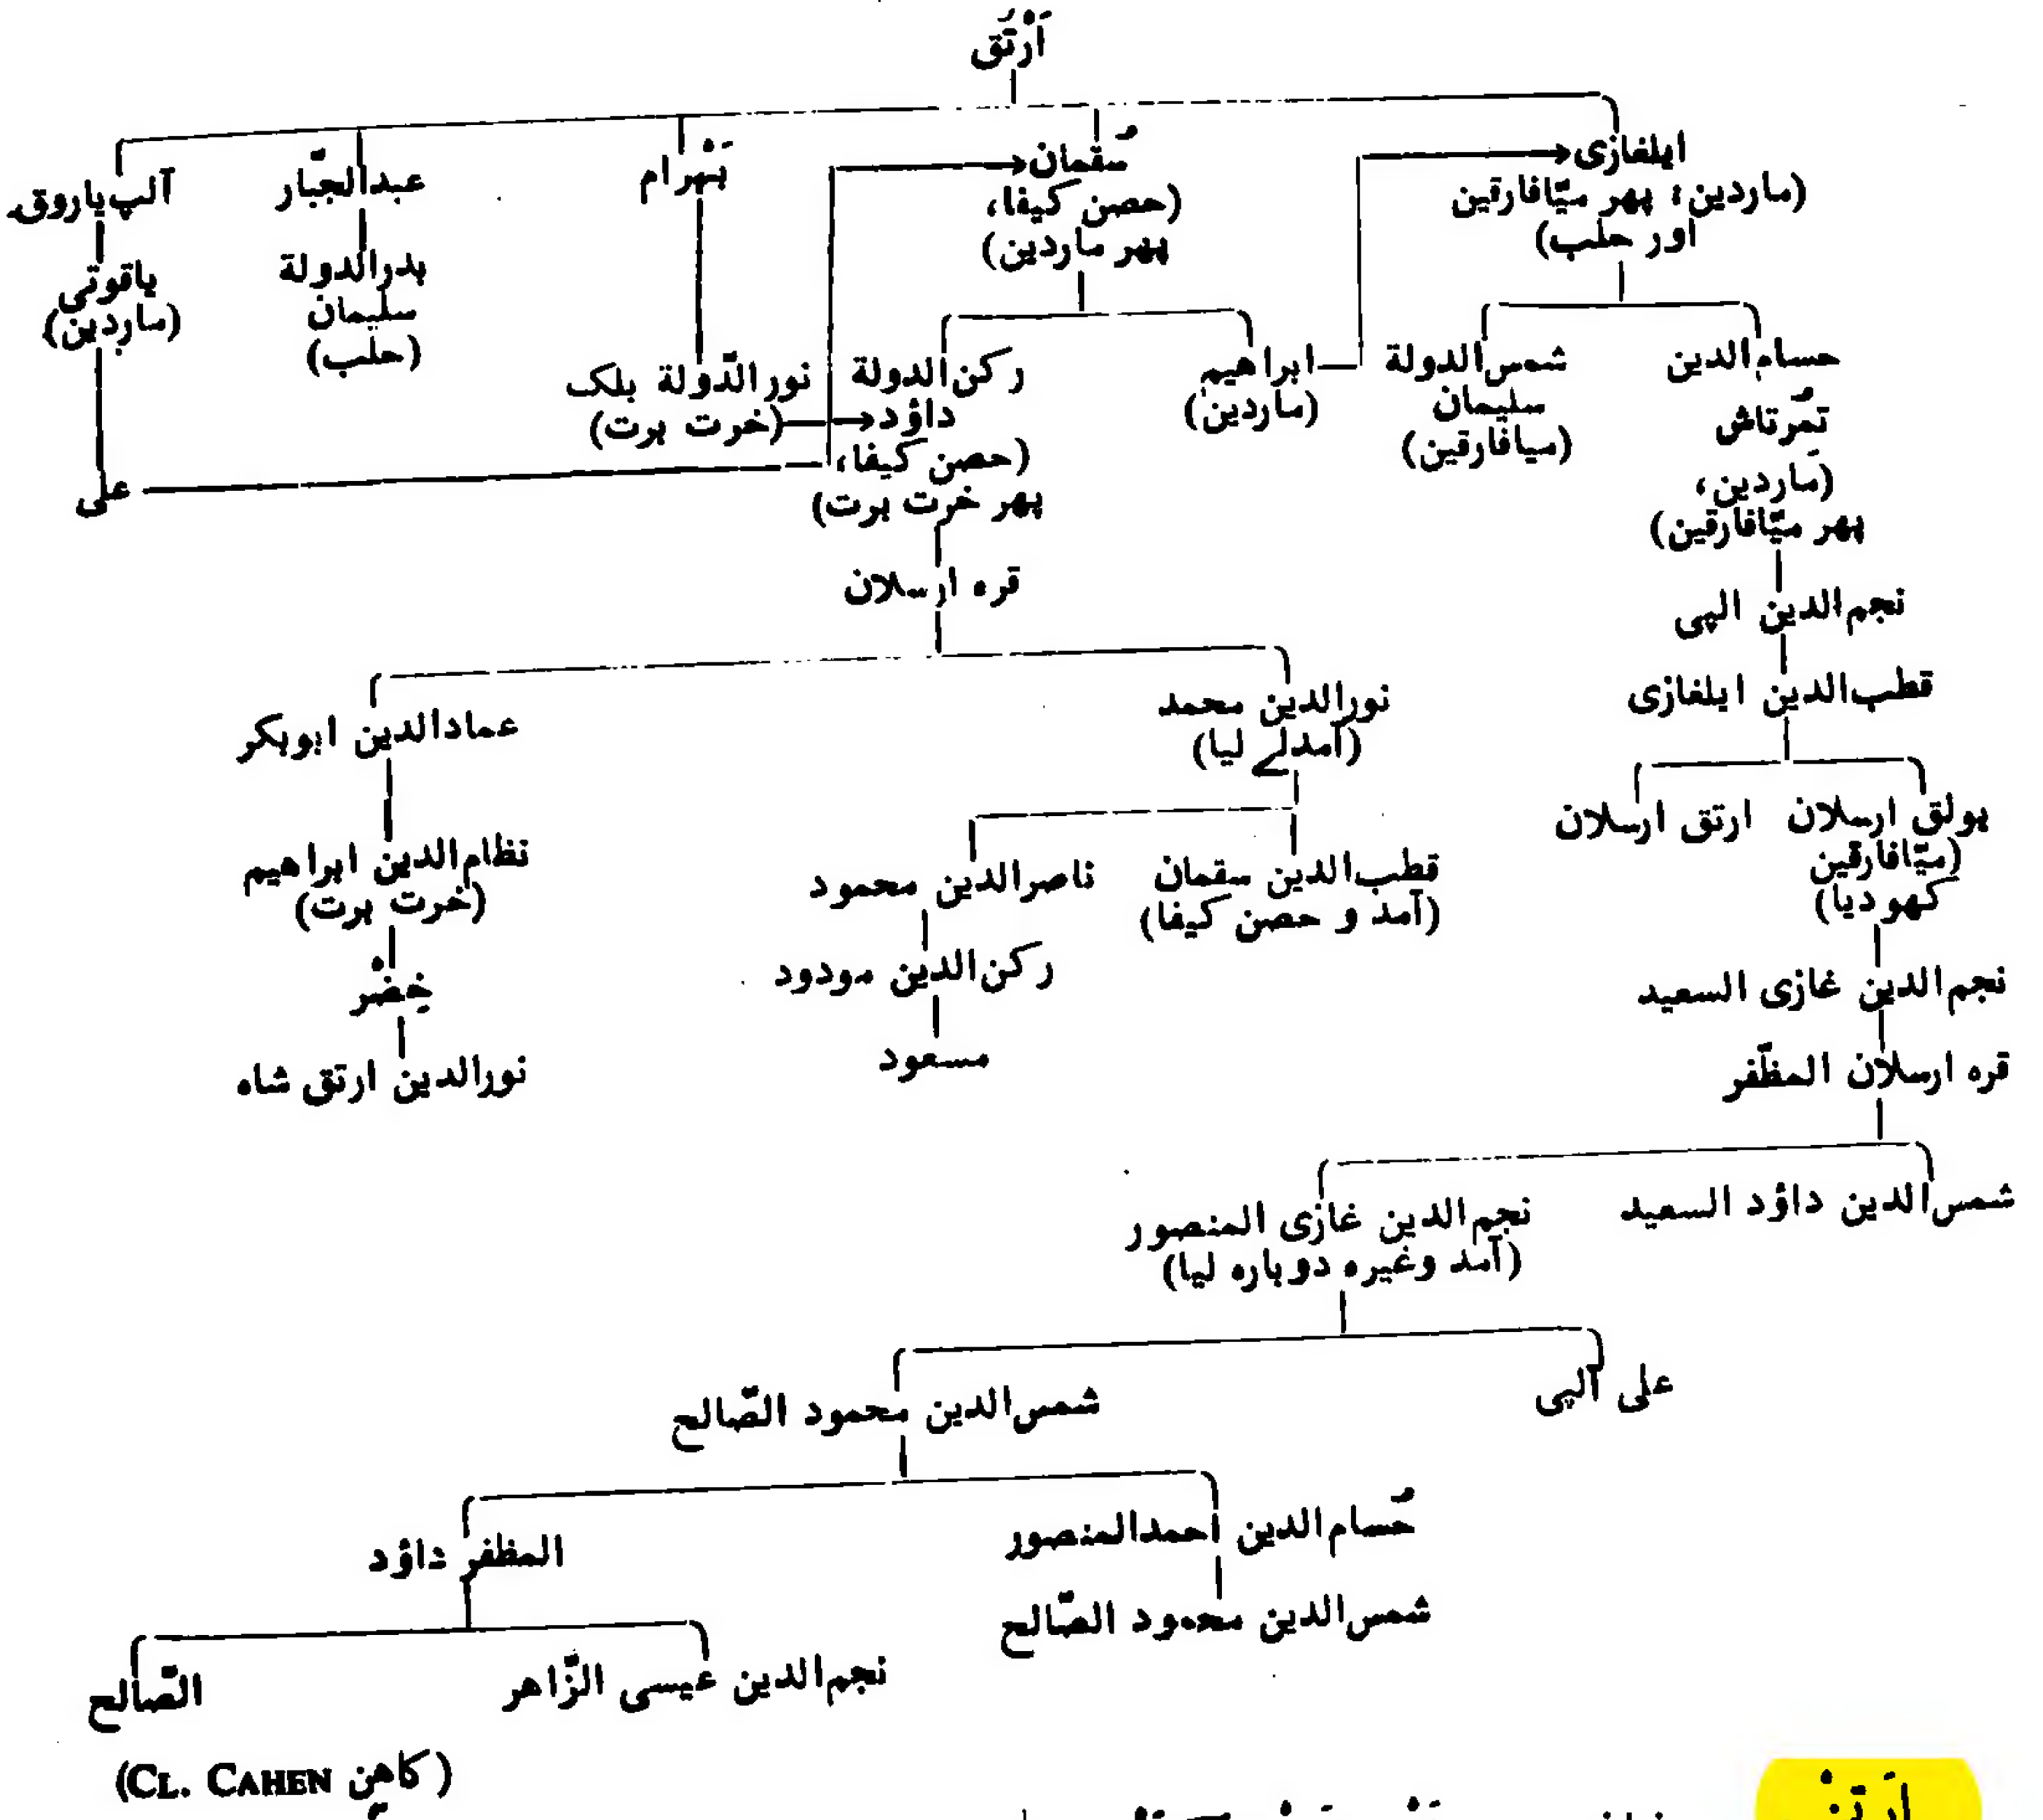 اَرْتُق
ایلغازی
(ماردین، پھر میّافارقین
اور حلب)
سُقمان
(حصن کیفا،
پھر ماردین)
بَہْرام
عبدالجبّار
آلپ یاروق
یاقوتی
(ماردین)
بدرالدولة
سلیمان
(حلب)
نورالدّولة بلک
(خرت برت)
رکن الدولة
داؤد
(حصن کیفا،
پھر خرت برت)
ابراھیم
(ماردین)
شمس الدولة
سلیمان
(میافارقین)
حسام الدین
تمُرتاش
(ماردین،
پھر میّافارقین)
علی
قرہ ارسلان
نجم الدین الپی
قطب الدین ایلغازی
نورالدین محمد
(آمدلے لیا)
عمادالدین ابوبکر
یولق ارسلان
(میّافارقین
کھو دیا)
ارتق ارسلان
قطب الدین سقمان
(آمد و حصن کیفا)
ناصرالدین محمود
نظام الدین ابراھیم
(خرت برت)
رکن الدین مودود
خِضْر
نجم الدین غازی السعید
مسعود
نورالدین ارتق شاہ
قرہ ارسلان المظّفر
شمس الدین داؤد السعید
نجم الدین غازی المنصور
(آمد وغیرہ دوبارہ لیا)
علی آلپی
شمس الدین محمود الصّالح
حُسام الدین احمدالمنصور
المظفر داؤد
شمس الدین محمود الصّالح
نجم الدین عیسی الزّاھر
الصّالح
(CL. CAHEN کاھن)